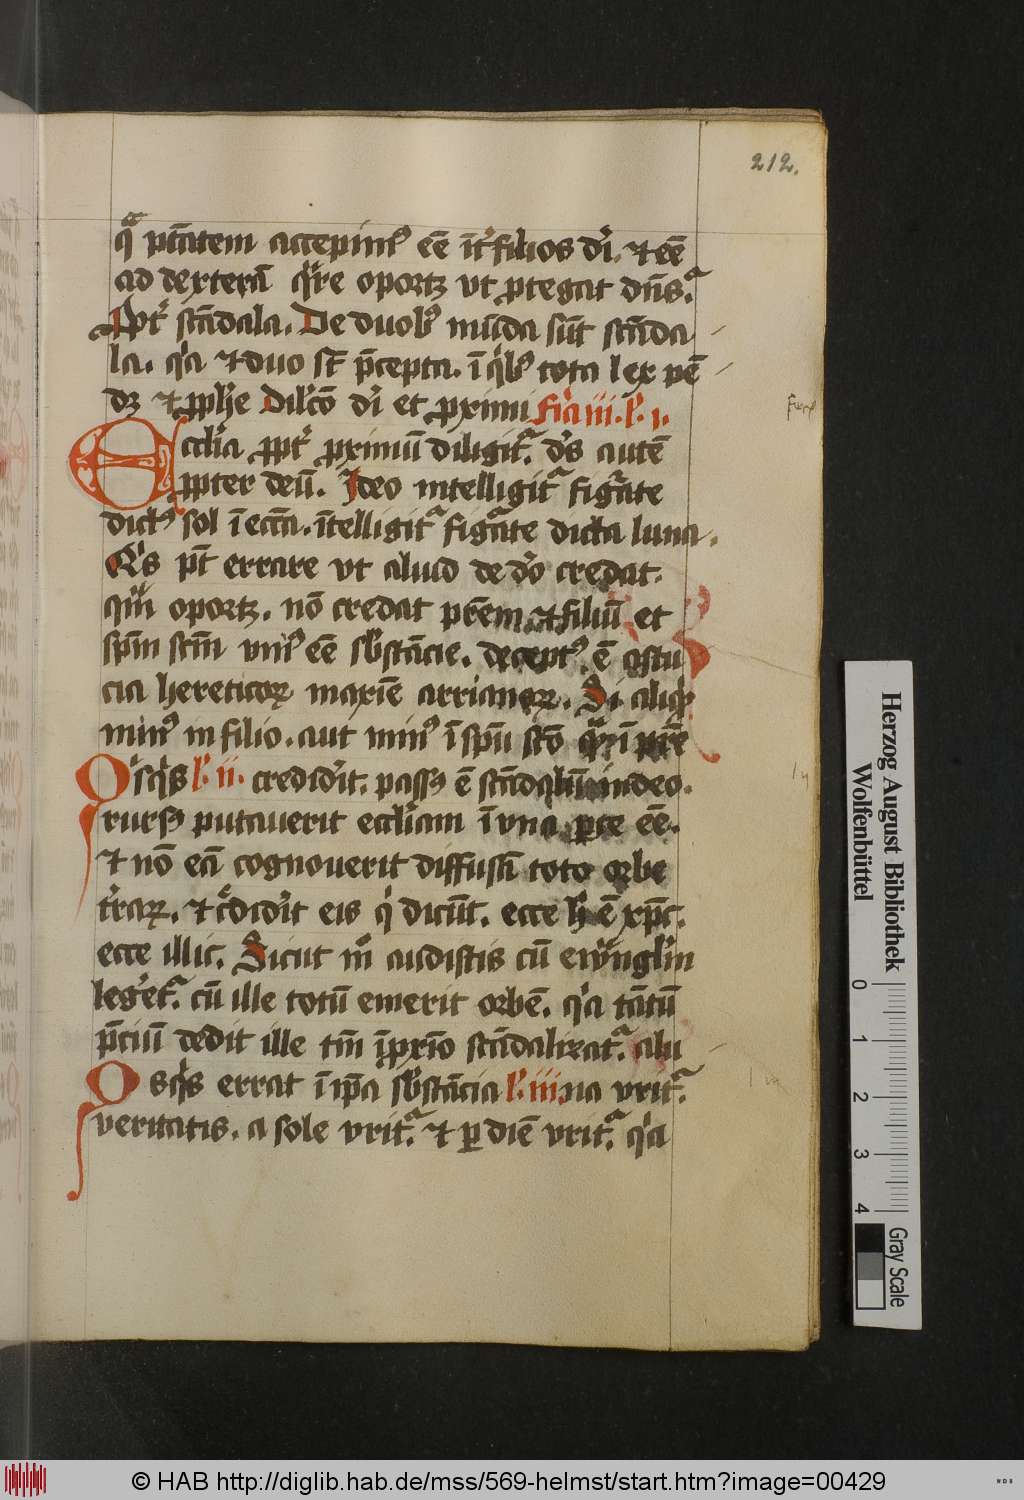 212.
qͣ ptātem accepimꝰ eē int̾ filios dī. ⁊ eē
ad dexterā qͣre oportꝫ vt ꝓtegat dn̄s.
Ppt̾ scādala. De duobꝰ mūda sūt scāda
la. qͥa ⁊ duo st̄ p̄cepta. ī qͥbꝰ tota lex pē
dꝫ ⁊ ꝓph̄e Dilc̄o dī et ꝓximi fīa iii. l̾. i.
Eccl̾ia ꝓpt̾ ꝓximū diligit᷑. dꝰs autē
ꝓpter deū. Ideo intelligit᷑ figͣate
dictꝰ sol ī ecc̄a. ītelligit᷑ figͣate dicta luna.
Qͥs pt̄ errare vt aliud de dō credat.
qͣm oportꝫ. nō credat pr̄em ⁊ filiū et
spm̄ scm̄ vniꝰ eē sb̄stācie. deceptꝰ. ē astu
cia hereticoꝝ maxīe arrianoꝝ. Si aliqͥd
minꝰ in filio. aut minꝰ ī spū scō qͣm ī pr̄e
Qͥsqͥs l̾. ii. credid̾it. passꝰ ē scādalū in deo.
rursꝰ putauerit eccl̾iam ī vna ꝑte eē.
⁊ nō eā cognouerit diffusā toto orbe
t̾raꝝ. ⁊ c̾did̾it eis qͥ dicūt. ecce h̄ ē xp̄c.
ecce illic. Sicut mͦ audistis cū ewͣngl̾m
leg̾et᷑. cū ille totū emerit orbē. qͥa tātū
p̄ciū dedit ille tm̄ ī ꝓxīo scādalizat᷑. alu
Qͥsqͥs errat ī ip̄a sb̄stācia l̾. iii. na vrit᷑.
veritatis. a sole vrit᷑. ⁊ ꝑ diē vrit᷑. qͥa
Herzog August Bibliothek
Wolfenbüttel
0
1
2
3
4
Gray Scale
© HAB http://diglib.hab.de/mss/569-helmst/start.htm?image=00429